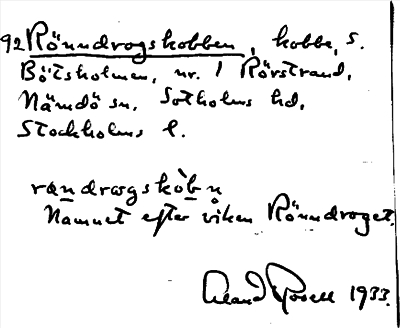 92 Rönndragskobben, kobbe, s.
Bötsholmen, nr. 1 Rörstrand,
Nämdö sn, Sotholms hd,
Stockholms l.
rændragskòbn̥
Namnet efter viken Rönndraget.
Rosell 1933.